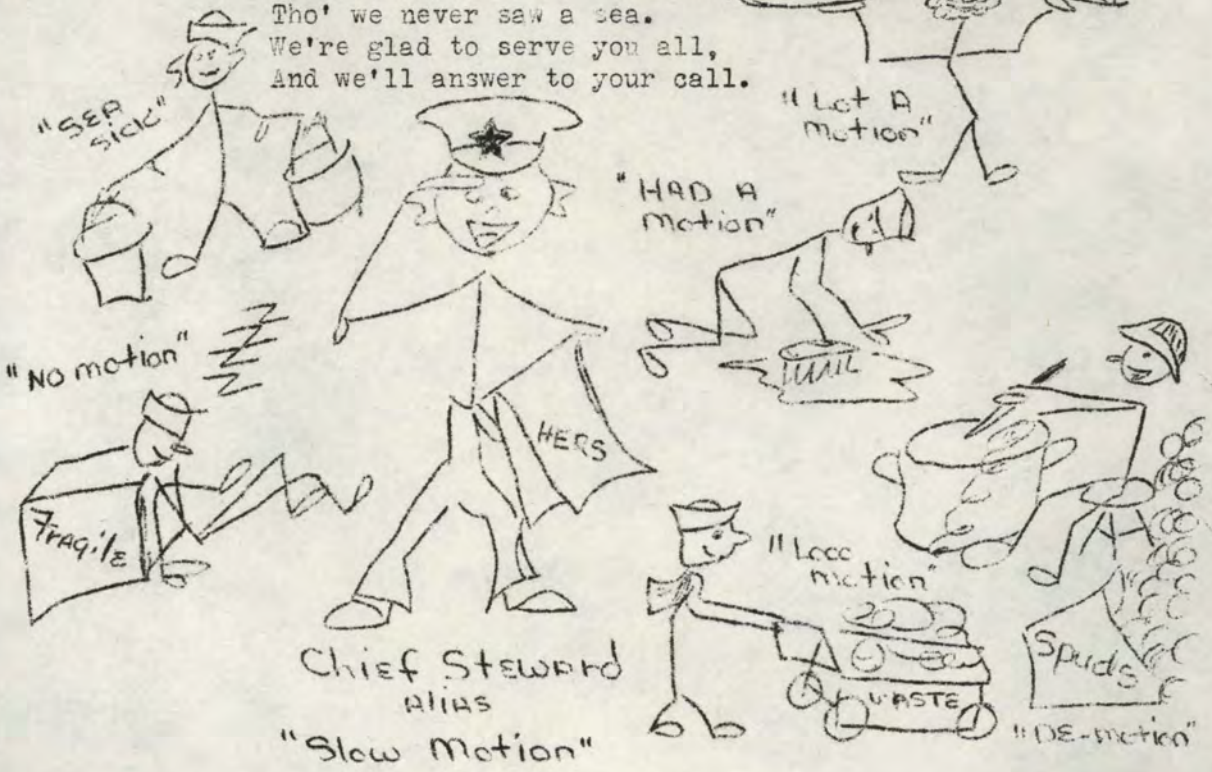 Tho' we never saw a sea.
We're glad to serve you all,
And we'll answer to your call.
"SEA
SICK"
"Lot A
Motion"
"HAD A
Motion"
"No motion"
HERS
Fragile
"Loco
motion"
WASTE
Spuds
"DE-motion"
Chief Steward
Alias
"Slow Motion"